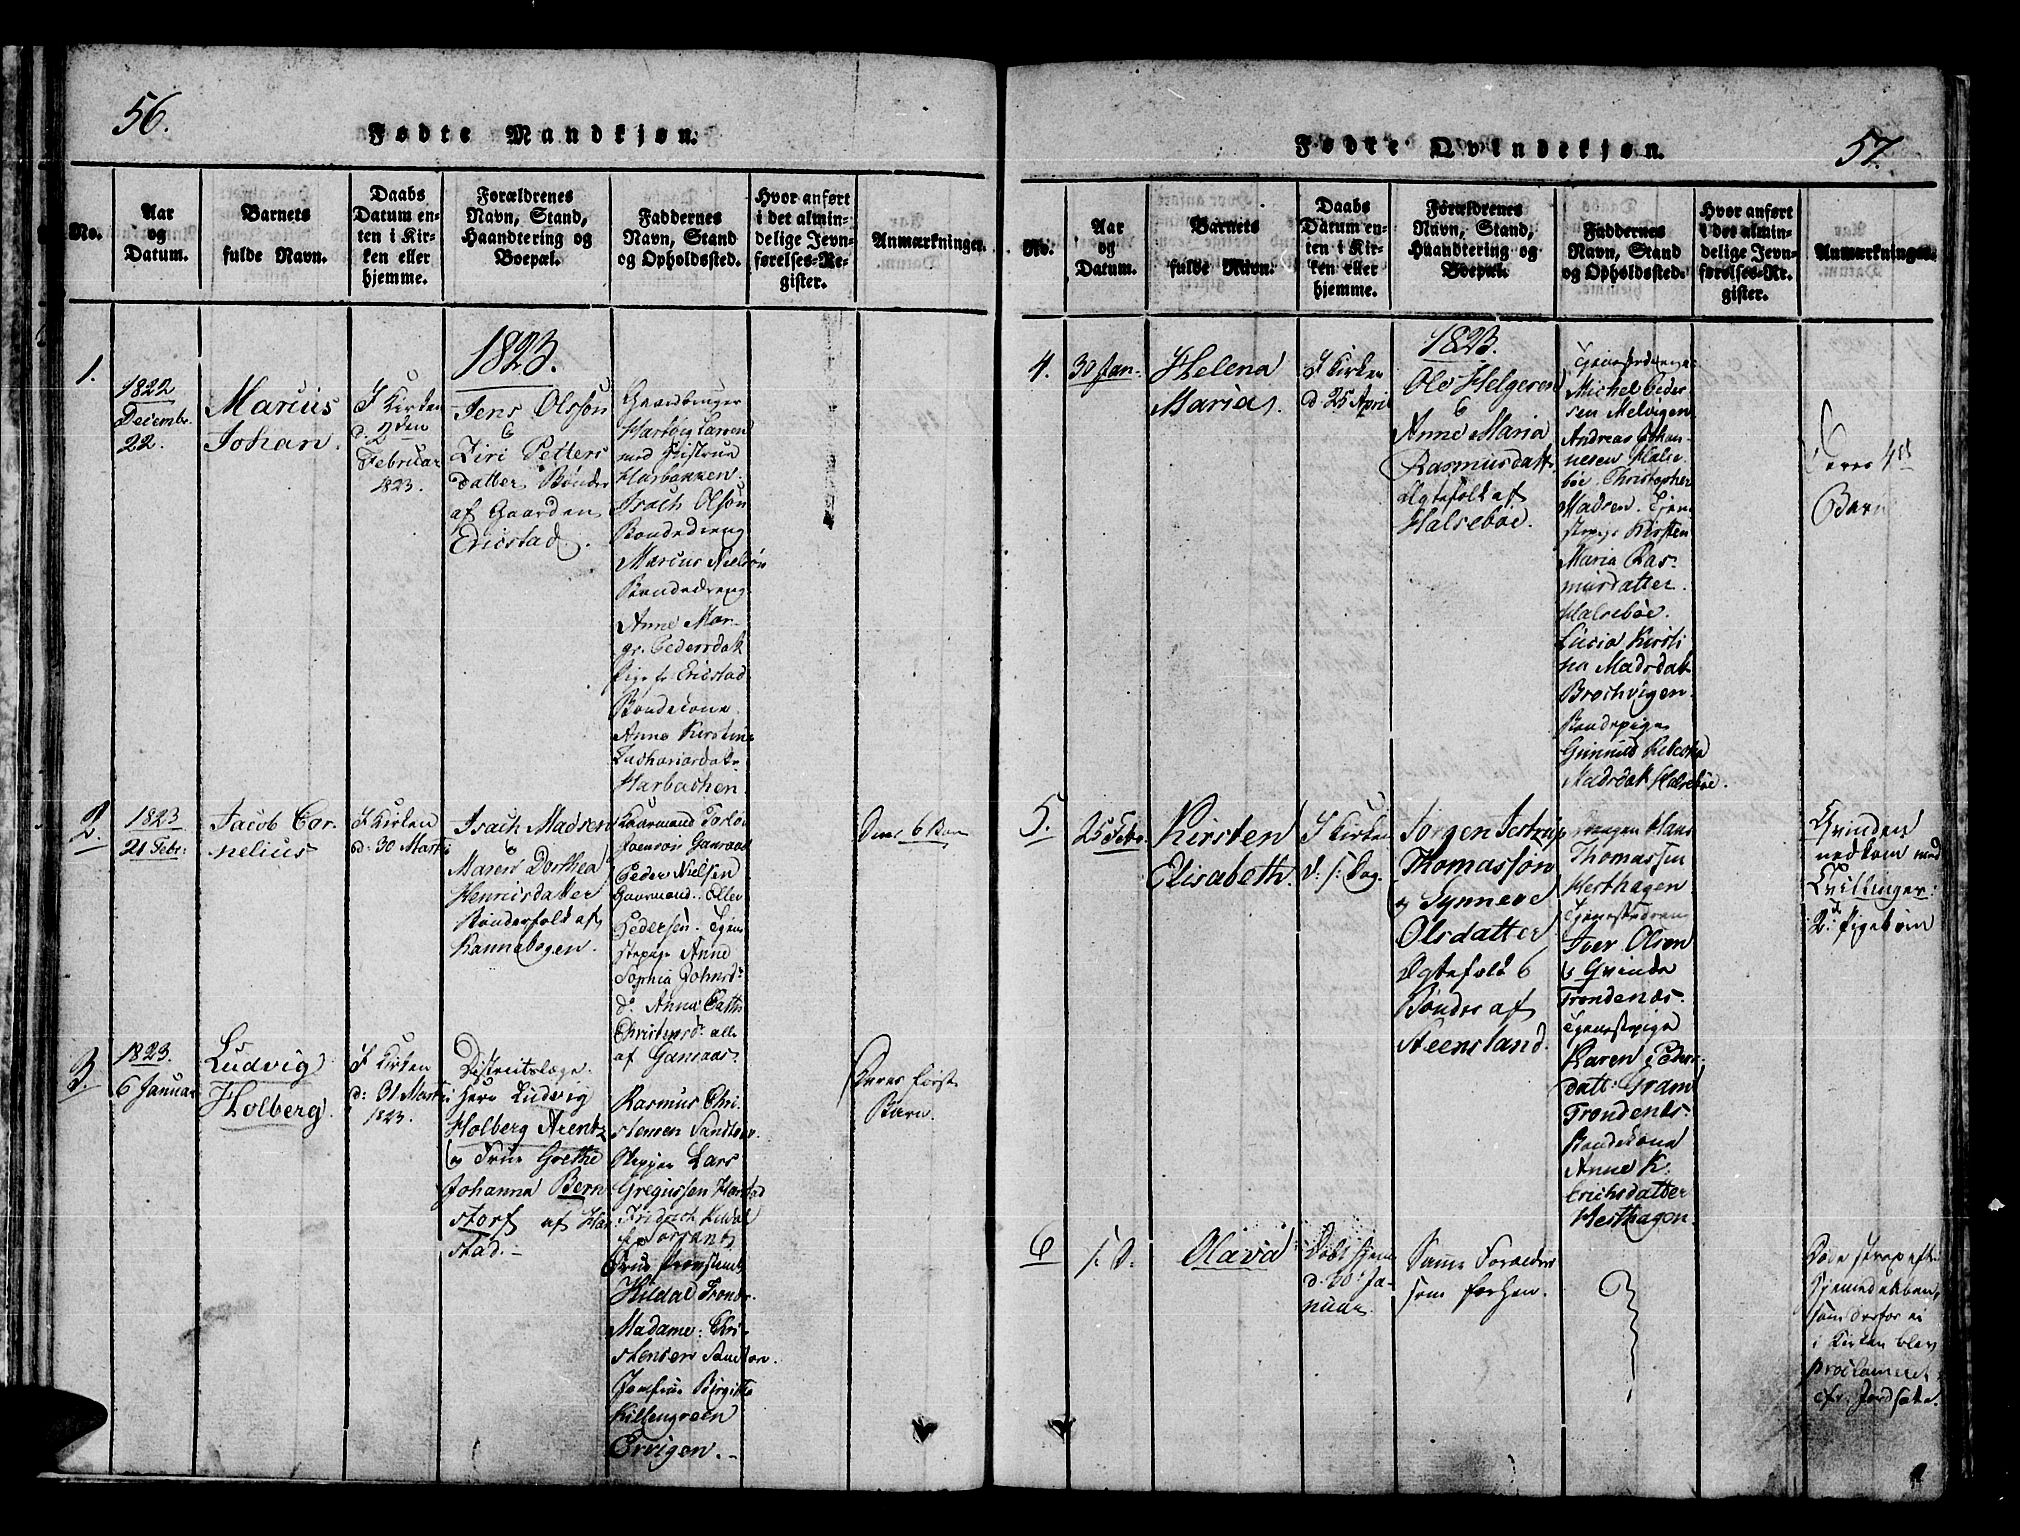 56.
Fødte Mandkjøn.
No.
Aar
og
Datum.
Barnets
fulde Navn.
Daabs
Datum en-
ten i Kir-
ken eller
hjemme.
Forældrenes
Navn, Stand,
Haandtering og
Boepæl.
Faddernes
Navn, Stand
og Opholdssted.
Hvor anført
i det almin-
delige Jevn-
førelses-Re-
gister.
Anmærkninger.
1823.
1.
1822
Decembr.
22.
Marcius
Johan.
I Kirken
d: 2den
Februar
1823.
Jens Olssøn
&
Siri Petters
datter Bønder
af Gaarden
Ericstad.
Gaardbruger
Hartvig Larsen
med Hustrue
Harbakken.
Isach Olsøn
Bondedreng
Marcus Nielsøn
Bondedreng
Anne Mar-
gr. Pedersdat
Pige fr Ericstad
Bondekone
Anne Kirstine
Zachariasdatr
Harbachen.
2.
1823
21 Febr:
Jacob Cor-
nelius
I Kirken
d: 30 Marti
Isach Madsen
&
Maren Dorthea
Henricsdatter
Bønderfolk af
Kannebogen.
Gaarmand
Ganraas
Peder Nielsen
Gaarmand. Eller
Pedersen. Tjene
stepige Anne
Sophia Johnsd
dr. Anne Cath.
Christensdr alle
af Ganraas.
Deres 6 Barn
3.
1823.
6 Januar
Ludvig
Holberg.
I Kirken
d: 31 Marti
1823.
Districtslæge
Herr Ludvig
Holberg Arentz
og Frue Grethe
Johanna Bern
storf af Har
stad.-
Rasmus Chri
stensen Sandtorv.
Skipper Lars
Gregussen Harstad
Friderich Kildal
Frue Provstinde
Kildal Tronds.
Madame: Chri-
stensen Sandtorv.
Jomfrue Birgitte
Killengreen
Ervigen.-
Deres først
Barn.
57.
Fødte Qvindekjøn.
No.
Aar
og
Datum.
Barnets
fulde Navn.
Daabs
Datum en-
ten i Kir-
ken eller
hjemme.
Forældrenes
Navn, Stand,
Haandtering og
Boepæl.
Faddernes
Navn, Stand
og Opholdssted.
Hvor anført
i det almin-
delige Jevn-
førelses-Re-
gister.
Anmærkninger.
1823.
4.
30 Jan.
Helena
Maria.
I Kirken
d. 25 April
Ole Helgesen
&
Anne Maria
Rasmusdatt
Egtefolk af
Halsebøe.
Tjenestedrenge
Michel Peder
sen Melvigen
Andreas Johan-
nesen Halse-
bøe. Christopher
Madsen. Tjene
stepige Kirsten
Maria Ras-
musdatter.
Halsebøe.
Lucia Kirsti
na Madsdat
Brochvigen.
Bondepige
Gunnild Rebecka
Madsdat Halsebøe.
Deres 4de
Barn
5.
25 Febr.
Kirsten
Elisabeth.
I Kirken
d: s: Dag.
Jørgen Jestrup
Thomassøn
og Synneve
Olsdatter
Egtefolk &
Bønder af
Steensland.
Hans
Thomassen
Hesthagen
Tjenestedreng
Iver Olsøn
og Qvinde
Trondenæs.
Tjenestepige
Karen Peders-
datt: Gram
Trondenes
Bondekone
Anne K.
Erichsdatter
Hesthagen.
Qvinden
nedkom med
Tvillinger:
2de Pigebørn
6
s. D.
Olava
Døbt hiem
d. 20: Ja-
nuar.
Samme Forældre
som forhen.
Døde strax efter
Hjemmedaaben,
som derfor ei
i Kirken blev
proclameret,
cfr. Jordsatte.